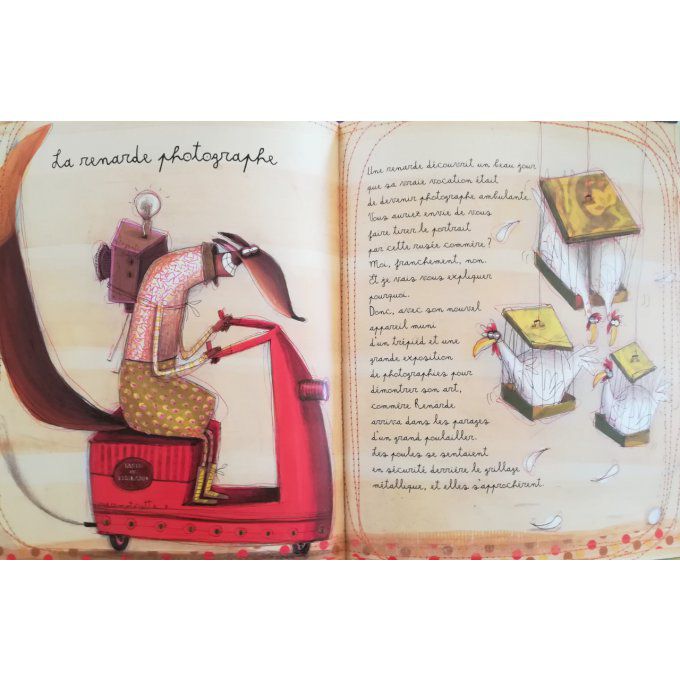 La renarde photographe
Une renarde découvrit un beau jour
que sa vraie vocation était
de devenir photographe ambulante.
Vous auriez envie de vous
faire tirer le portrait
par cette rusée commère ?
Moi, franchement, non.
Et je vais vous expliquer
pourquoi.
Donc, avec son nouvel
appareil muni
d'un trépied et une
grande exposition
de photographies pour
démontrer son art,
commère Renarde
arriva dans les parages
d'un grand poulailler.
Les poules se sentaient
en sécurité derrière le grillage
métallique, et elles s'approchèrent